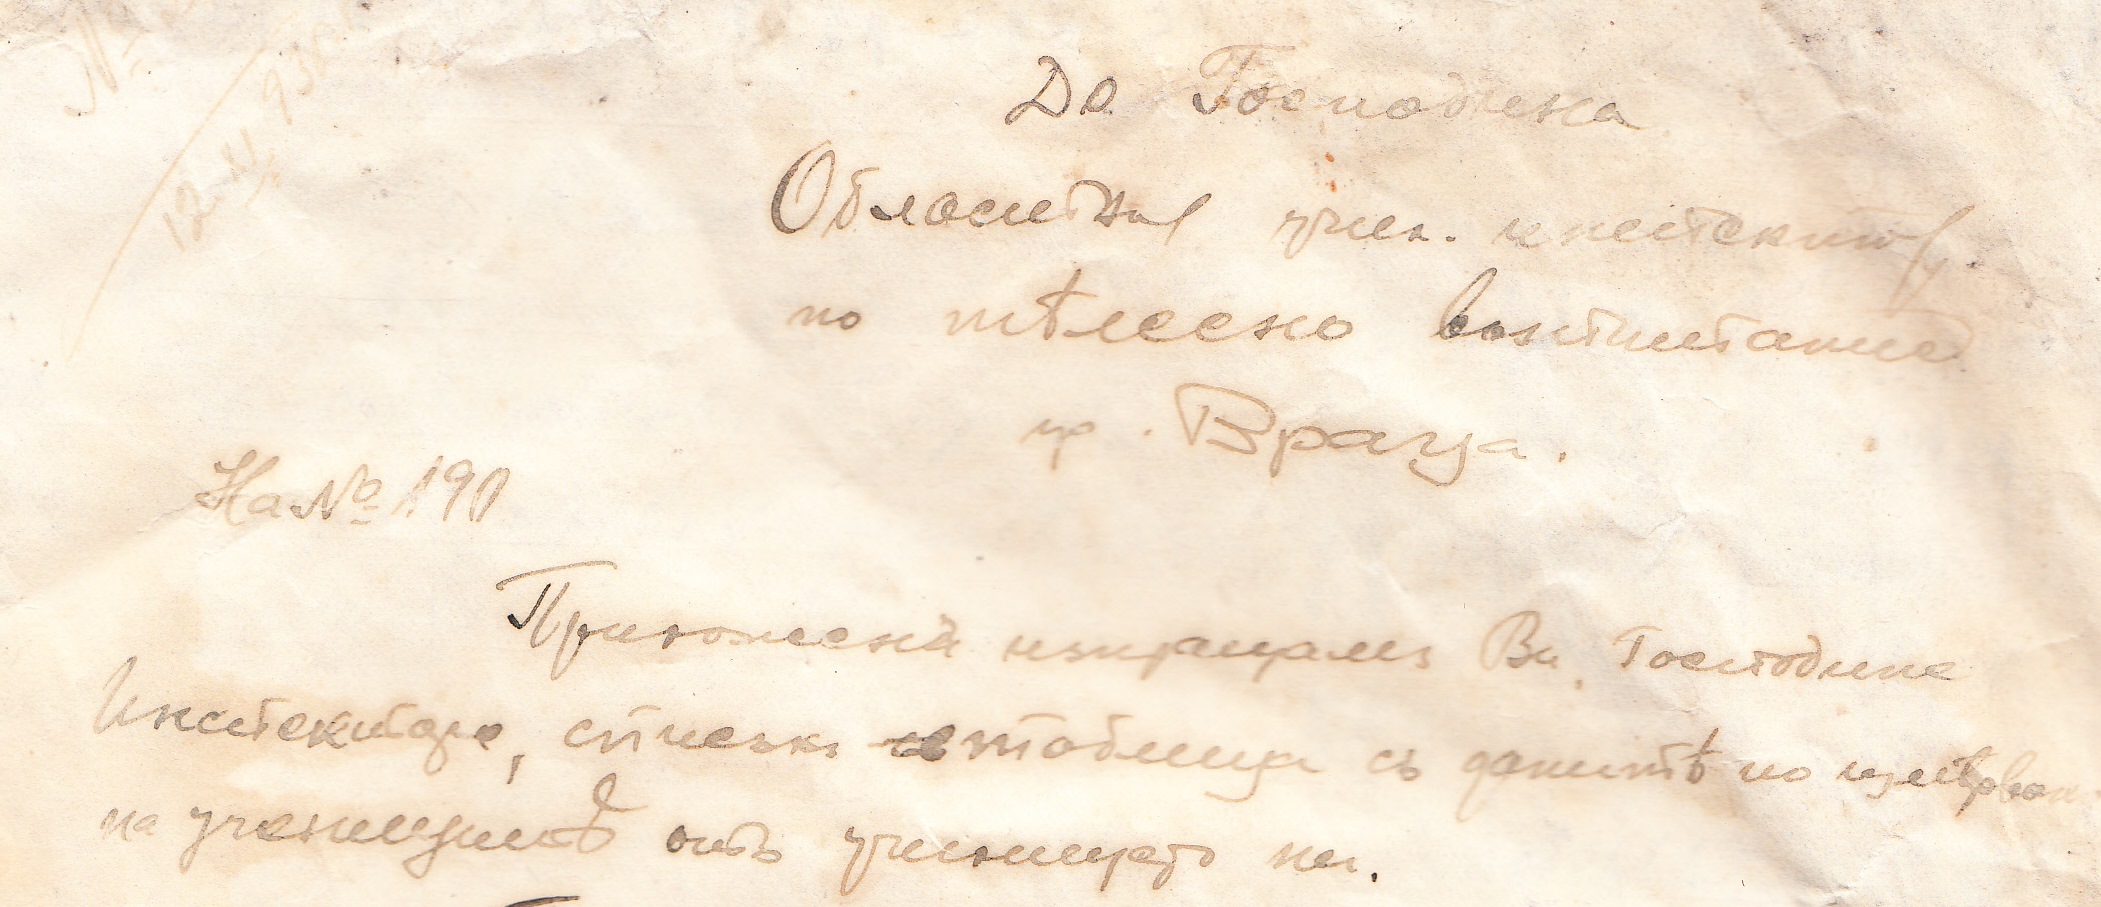 №
12.II.93
До Господина
Областния учил. инспекторъ
по тѣлесно възпитание
гр. Враца.
На № 190
Приложенъ изпращамъ Ви, Господине
Инспекторе, списъкъ таблица съ данитѣ по измѣрван
на ученицитѣ отъ училището ни.